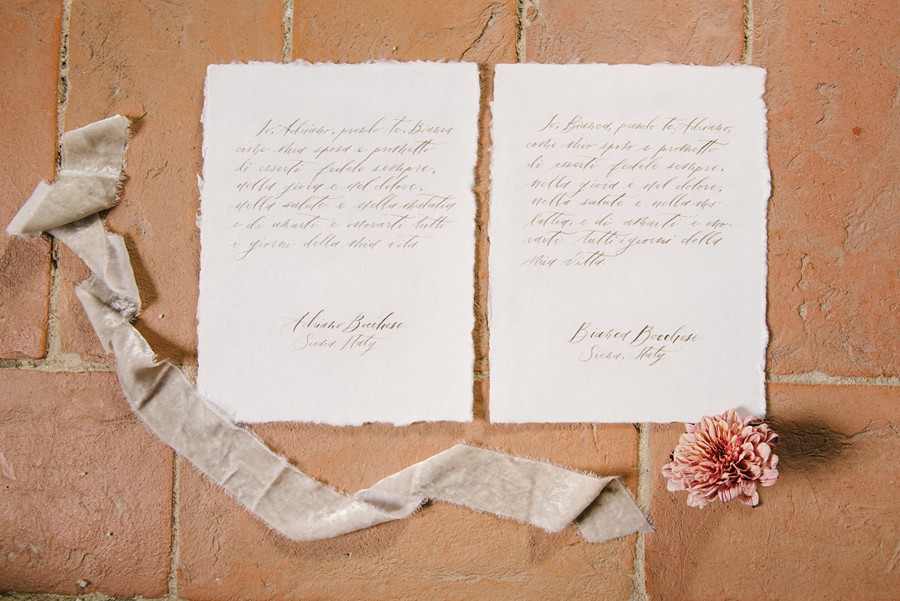 Io, Adriano, prendo te, Bianca
come mia sposa e prometto
di esserti fedele sempre,
nella gioia e nel dolore,
nella salute e nella malattia
e di amarti e onorarti tutti
i giorni della mia vita
Adriano Bochese
Siena, Italy
Io, Bianca, prendo te, Adriano,
come mio sposo e prometto
di esserti fedele sempre,
nella gioia e nel dolore,
nella salute e nella ma
lattia, e di amarti e ono-
rarti tutti i giorni della
mia vitta.
Bianca Bochese
Siena, Italy